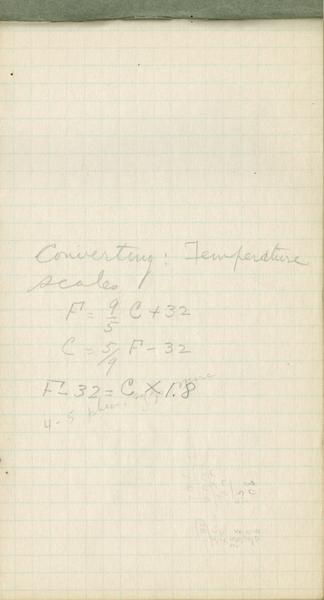 Converting: Temperature
scales
F = 9/5 C + 32
C = 5/9 F - 32
F - 32 = C × 1.8
4-5